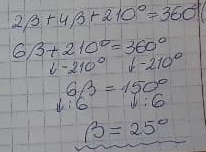 2β+4β+210°=360°(
6β+210°=360°
↓-210° ↓-210°
6β=150°
↓:6 ↓:6
β=25°